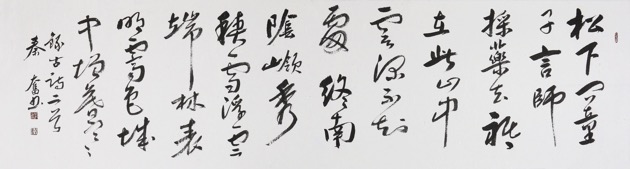 松下問童
子言師
採藥去祇
在此山中
雲深不知
處終南
陰嶺秀
積雪浮雲
端林表
明霽色城
中增暮寒
錄古詩二首
秦奮書